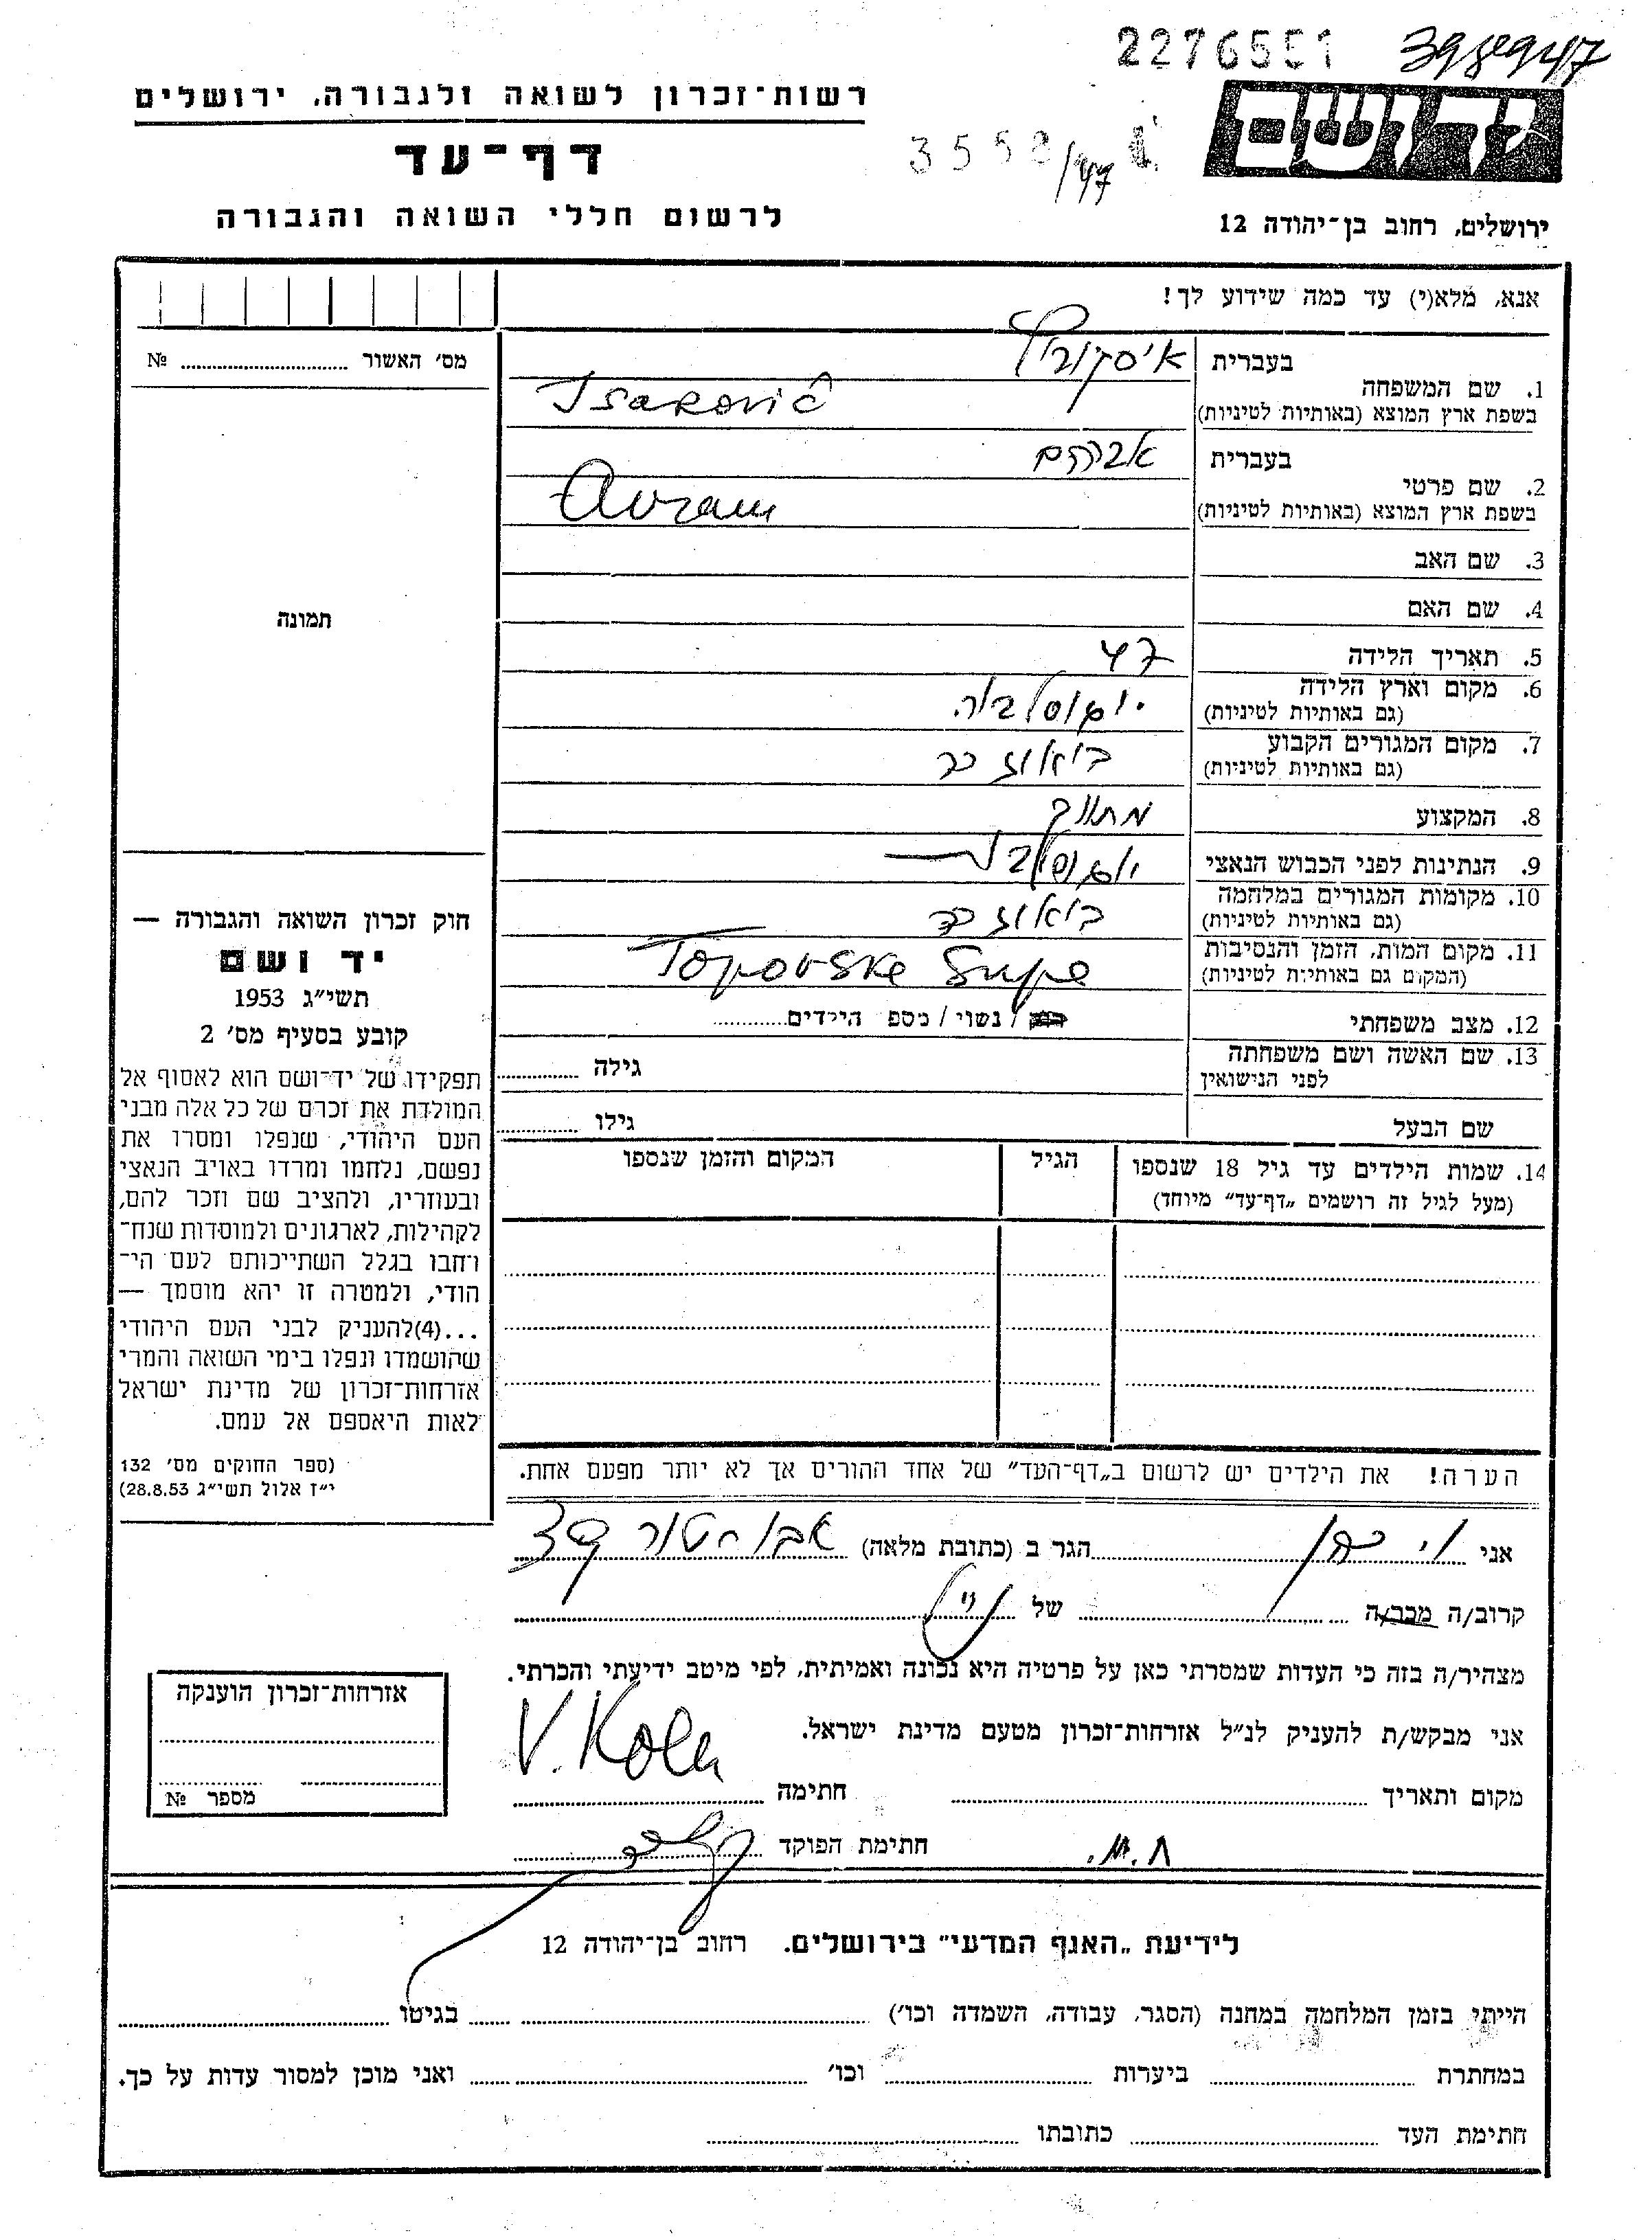 2276551 3989947
רשות־זכרון לשואה ולגבורה, ירושלים
יד ושם
דף־עד
3558/47
לרשום חללי השואה והגבורה
ירושלים, רחוב בן־יהודה 12
אנא, מלא(י) עד כמה שידוע לך!
מס׳ האשור № ........
בעברית
1. שם המשפחה
בשפת ארץ המוצא (באותיות לטיניות)
Isaković
בעברית אברהם
2. שם פרטי
בשפת ארץ המוצא (באותיות לטיניות)
Avram
3. שם האב
4. שם האם
תמונה
5. תאריך הלידה 47
6. מקום וארץ הלידה
(גם באותיות לטיניות)
יוגוסלביה
7. מקום המגורים הקבוע
(גם באותיות לטיניות)
8. המקצוע מתווך
9. הנתינות לפני הכבוש הנאצי
10. מקומות המגורים במלחמה
(גם באותיות לטיניות)
11. מקום המות, הזמן והנסיבות
(המקום גם באותיות לטיניות)
Topovske Šupe
12. מצב משפחתי
/ נשוי / מספ הילדים
13. שם האשה ושם משפחתה
לפני הנישואין
גילה
שם הבעל גילו
14. שמות הילדים עד גיל 18 שנספו
(מעל לגיל זה רושמים „דף־עד” מיוחד)
הגיל
המקום והזמן שנספו
חוק זכרון השואה והגבורה —
יד ושם
תשי״ג 1953
קובע בסעיף מס׳ 2
תפקידו של יד־ושם הוא לאסוף אל
המולדת את זכרם של כל אלה מבני
העם היהודי, שנפלו ומסרו את
נפשם, נלחמו ומרדו באויב הנאצי
ובעוזריו, ולהציב שם וזכר להם,
לקהילות, לארגונים ולמוסדות שנח־
רבו בגלל השתייכותם לעם הי־
הודי, ולמטרה זו יהא מוסמך —
...(4)להעניק לבני העם היהודי
שהושמדו ונפלו בימי השואה והמרי
אזרחות־זכרון של מדינת ישראל
לאות היאספם אל עמם.
(ספר החוקים מס׳ 132
י״ז אלול תשי״ג 28.8.53)
הערה! את הילדים יש לרשום ב„דף־העד” של אחד ההורים אך לא יותר מפעם אחת.
אני הגר ב (כתובת מלאה)
קרוב/ה מכר/ה של
מצהיר/ה בזה כי העדות שמסרתי כאן על פרטיה היא נכונה ואמיתית, לפי מיטב ידיעתי והכרתי.
אני מבקש/ת להעניק לנ״ל אזרחות־זכרון מטעם מדינת ישראל.
אזרחות־זכרון הוענקה
מספר №
מקום ותאריך חתימה
חתימת הפוקד
לידיעת „האגף המדעי” בירושלים. רחוב בן־יהודה 12
הייתי בזמן המלחמה במחנה (הסגר, עבודה, השמדה וכו׳) בגיטו
במחתרת ביערות וכו׳ ואני מוכן למסור עדות על כך.
חתימת העד כתובתו